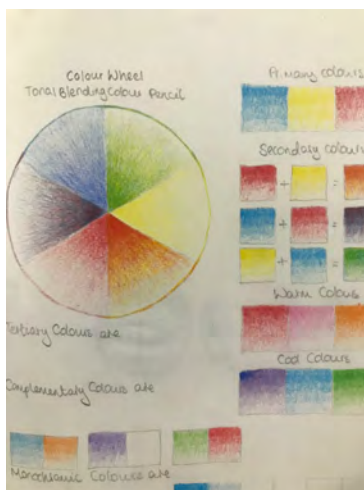 Colour Wheel
Tonal Blending Colour Pencil
Primary colours
Secondary colours
+ =
+ =
+ =
Warm Colours
Tertiary Colours are
Cool Colours
Complementary Colours are
Monochromic Colours are